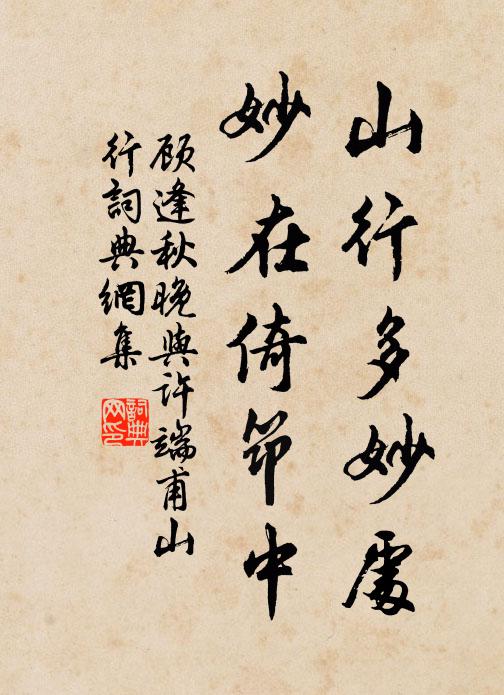 山行多妙處
妙在倚笻中
顾逢秋晚與许端甫山
行詞典網集
詞典网印